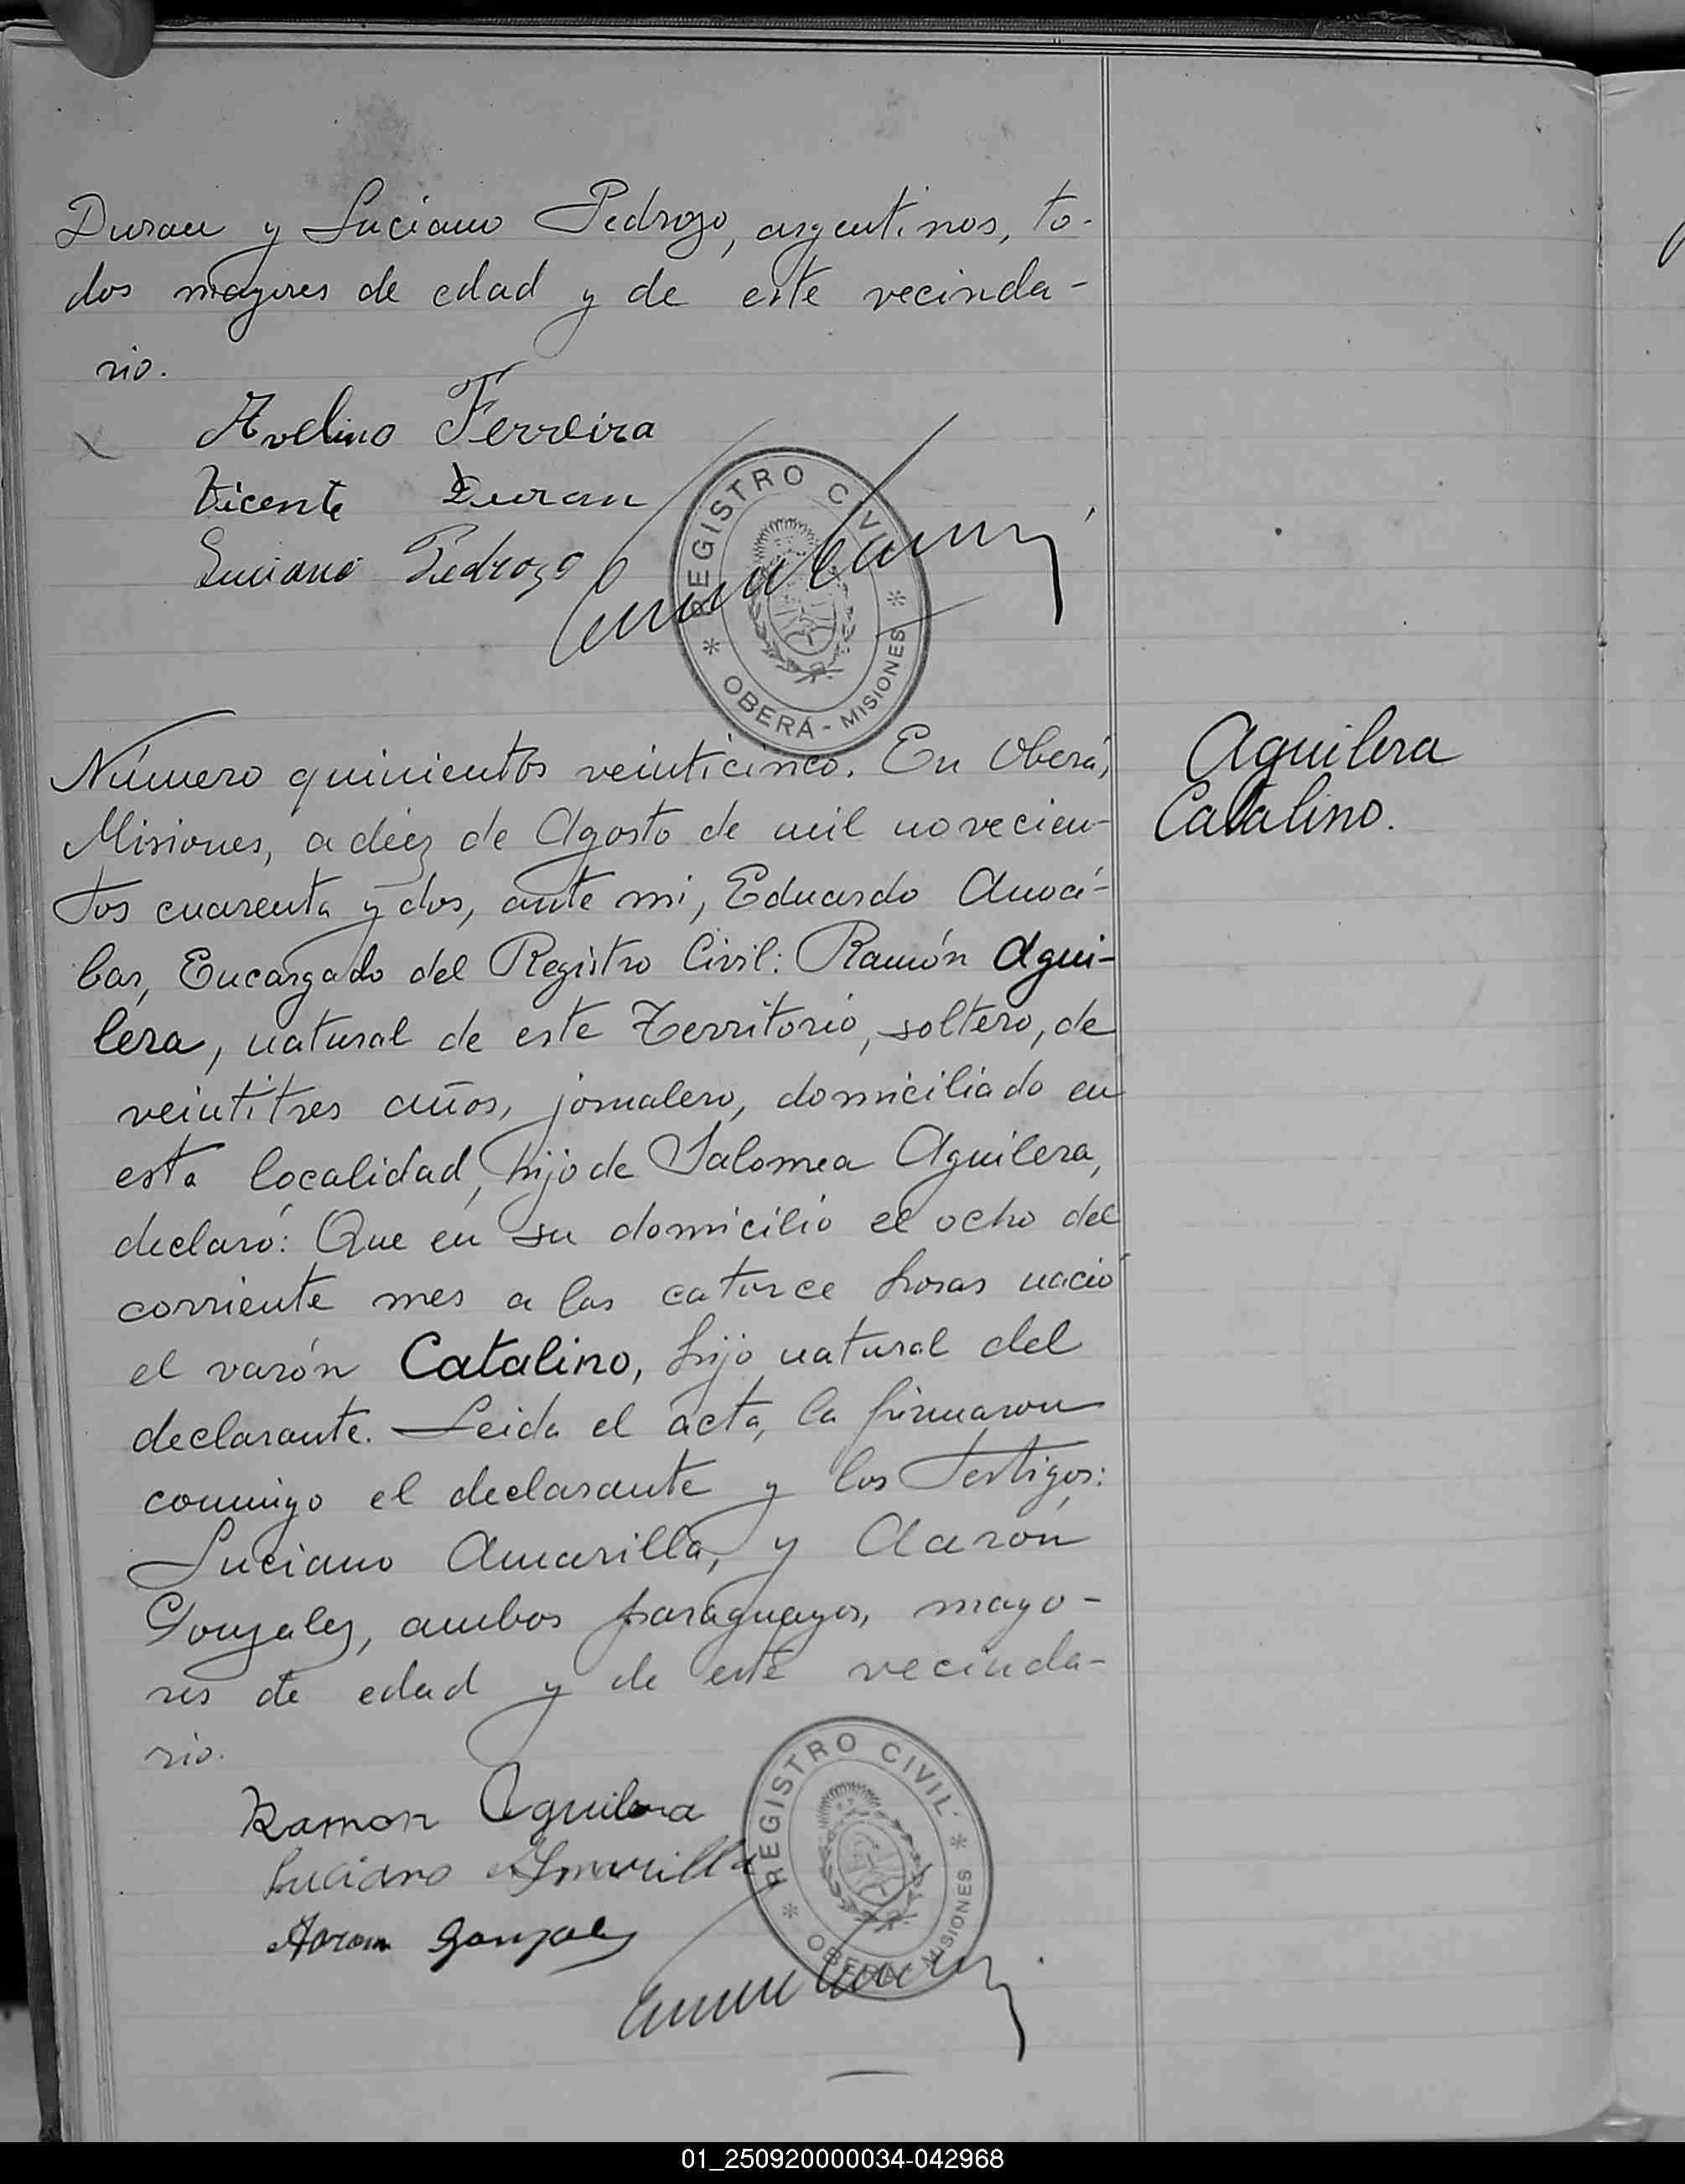 Duran y Luciano Pedrozo, argentinos, to-
dos mayores de edad y de este vecinda-
rio.
Avelino Ferreira
Vicente Duran
Luciano Pedrozo
REGISTRO CIVIL
OBERÁ - MISIONES
Número quinientos veinticinco. En Oberá,
Misiones, a diez de Agosto de mil novecien-
tos cuarenta y dos, ante mi, Eduardo
bar, Encargado del Registro Civil: Ramón Agui-
lera, natural de este Territorio, soltero, de
veintitres años, jornalero, domiciliado en
esta localidad, hijo de Salomea Aguilera,
declaró: Que en su domicilio el ocho del
corriente mes a las catorce horas nació
el varón Catalino, hijo natural del
declarante. Leida el acta, la firmaron
conmigo el declarante y los testigos:
Luciano Amarilla, y Aarón
Gonzalez, ambos paraguayos, mayo-
res de edad y de este vecinda-
rio.
Aguilera
Catalino.
Ramon Aguilera
Luciano Amarilla
Aaron Gonzalez
REGISTRO CIVIL
OBERÁ - MISIONES
01_250920000034-042968